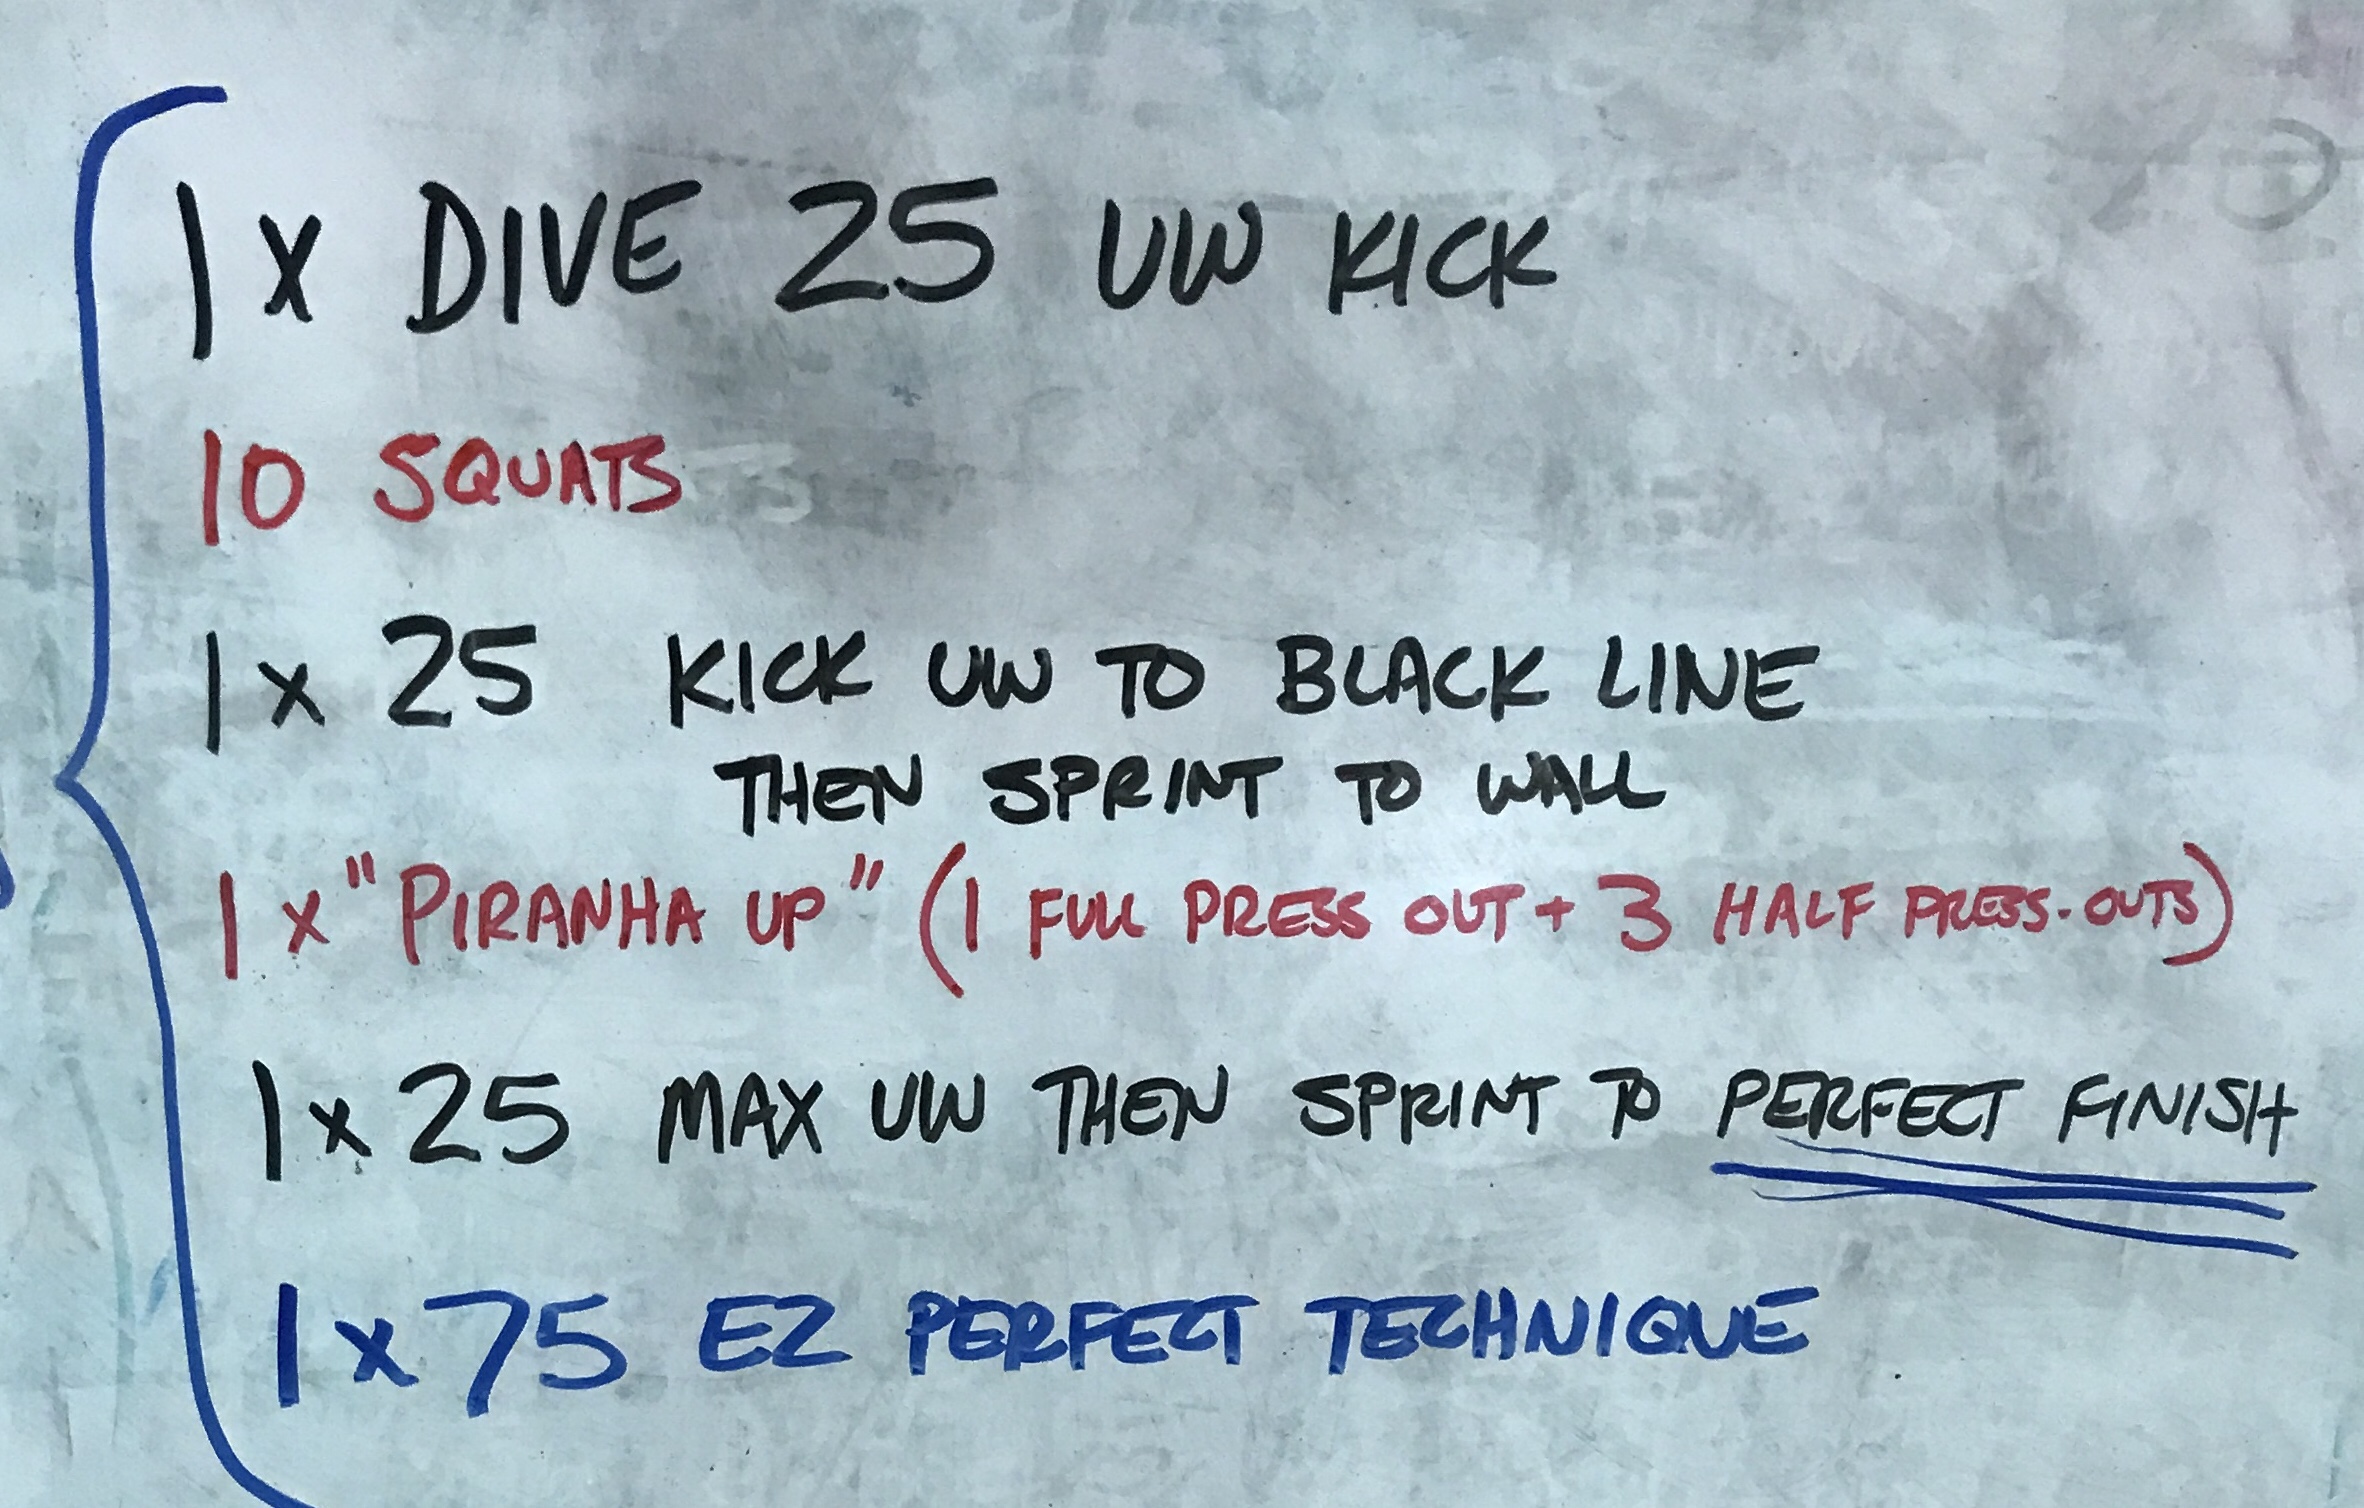 1 x DIVE 25 UW KICK
10 SQUATS
1 x 25 KICK UW TO BLACK LINE
THEN SPRINT TO WALL
1 x "PIRANHA UP" (1 FULL PRESS OUT + 3 HALF PRESS-OUTS)
1 x 25 MAX UW THEN SPRINT TO PERFECT FINISH
1 x 75 EZ PERFECT TECHNIQUE